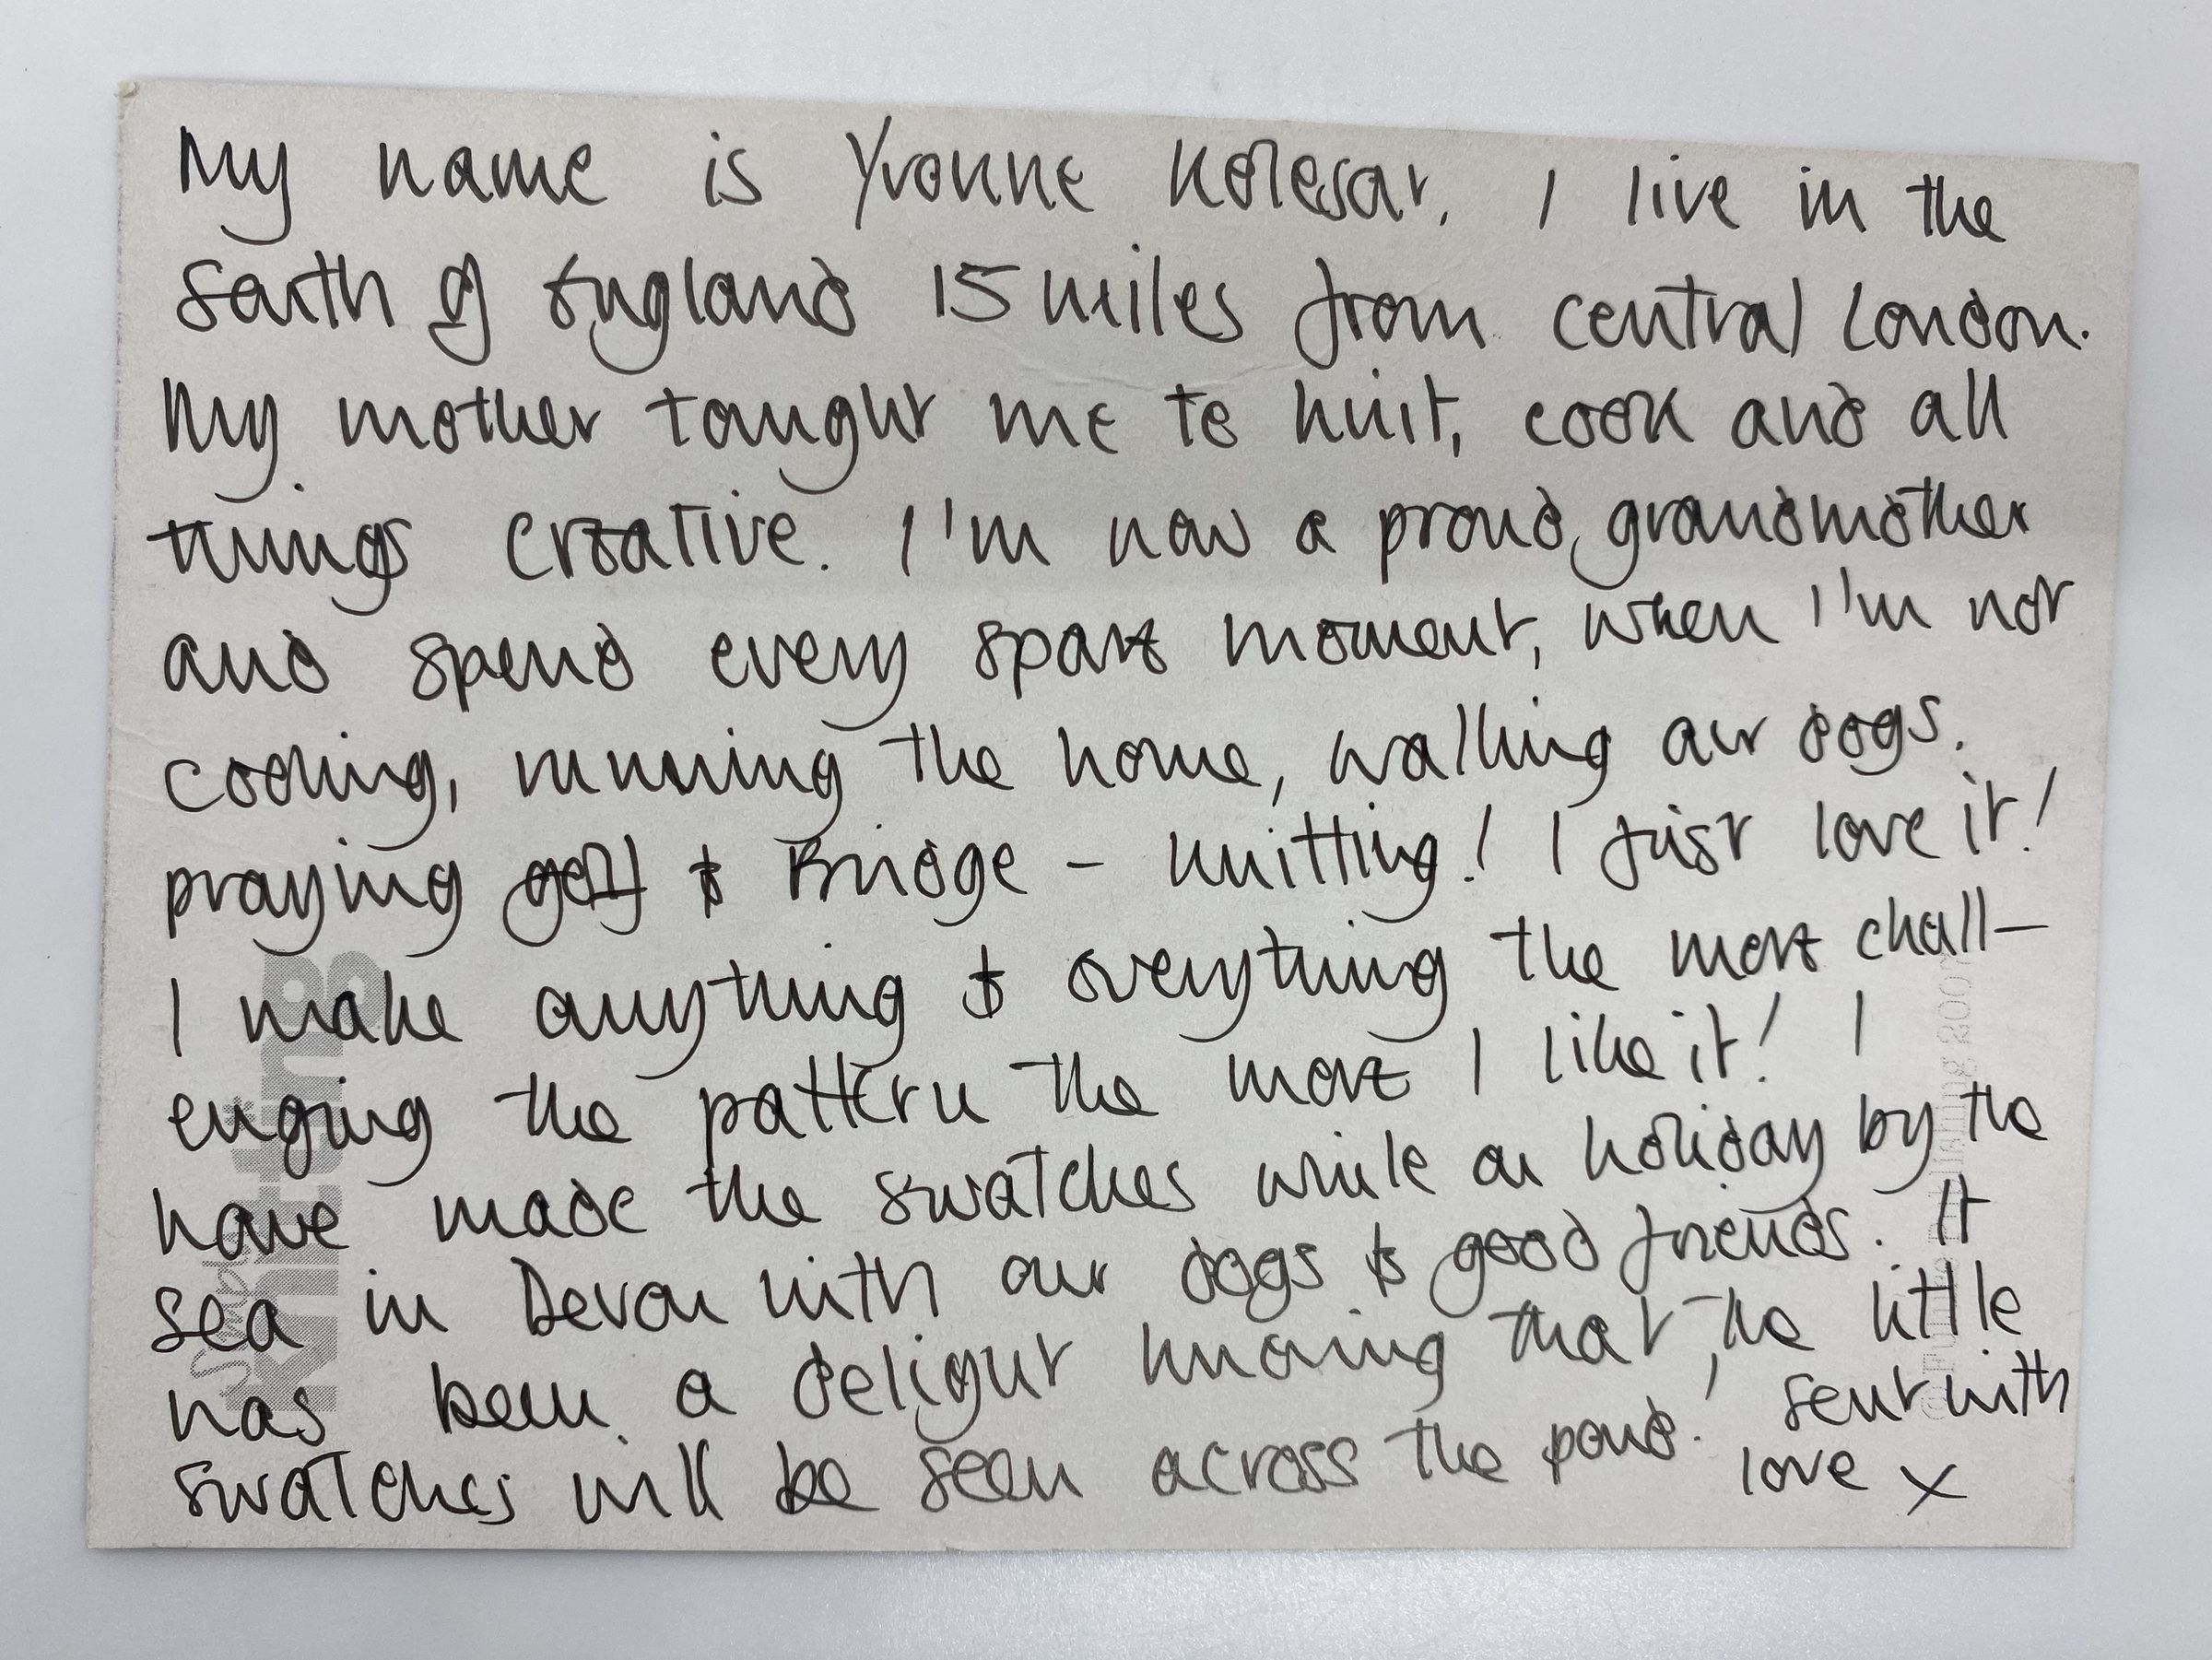 My name is Yvonne Kolesar. I live in the
South of England 15 miles from central London.
My mother taught me to knit, cook and all
things creative. I'm now a proud grandmother
and spend every spare moment, when I'm not
cooking, running the home, walking our dogs.
playing golf & Bridge - knitting! I just love it!
I make anything & everything the more chall-
enging the pattern the more I like it! I
have made the swatches while on holiday by the
sea in Devon with our dogs & good friends. It
has been a delight knowing that the little
swatches will be seen across the pond! sent with
love x
Simply
knitting